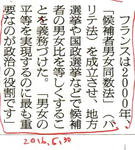 フランスは2000年、
「候補者男女同数法」(パ
リテ法)を成立させ、地方
選挙や国政選挙などで候補
者の男女比を等しくするこ
とを義務づけた。「男女の
平等を実現するのに最も重
要なのが政治の役割です」
2016,6,30